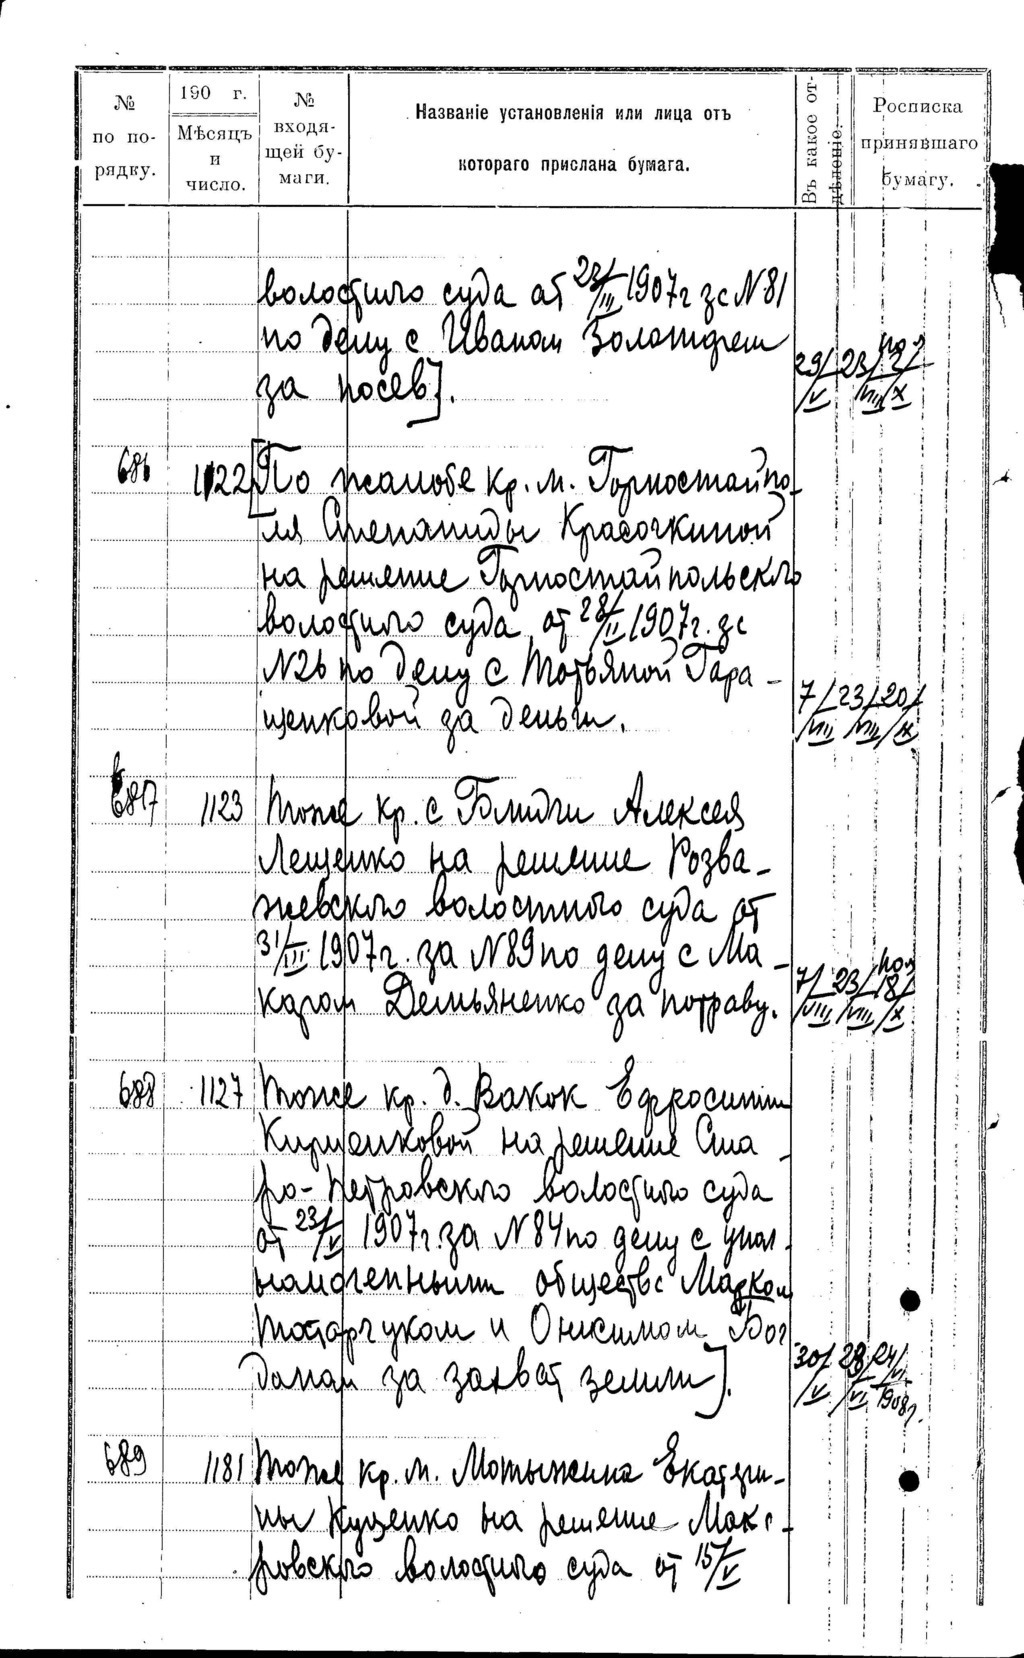 № по порядку.
190 г. Мѣсяцъ и число.
№ входящей бумаги.
Названіе установленія или лица отъ котораго прислана бумага.
Въ какое отдѣленіе.
Росписка принявшаго бумагу.
волостного суда от 23/III 1907г за N81
по делу с Иваном Золотарем
за посев]. 29/V 23/VIII 2/X
686 1122 [По жалобе кр. м. Горностайпо-
ля Степаниды Красочкиной
на решение Горностайпольского
волостного суда от 28/II 1907г. за
N26 по делу с Татьяной Гара-
щенковой за деньги. 7/VIII 23/VIII 20/IX
687 1123 Тоже кр. с Блидчи Алексея
Лещенко на решение Розва-
жевского волостного суда от
31/III 1907г. за N89 по делу с Ма-
каром Демьяненко за потраву. 7/VIII 23/VIII 18/X
688 1127 Тоже кр. д. Вахок Ефросинии
Кириенковой на решение Ста-
ро-Петровского волостного суда
от 23/V 1907г. за N84 по делу с упол-
номоченными общества Марком
Татарчуком и Онисимом Бог
даном за захват земли]. 30/V 28/VI 24/VI 1908г.
689 1181 Тоже кр. м. Мотыжина Екатери-
ны Куценко на решение Мака-
ровского волостного суда от 15/V